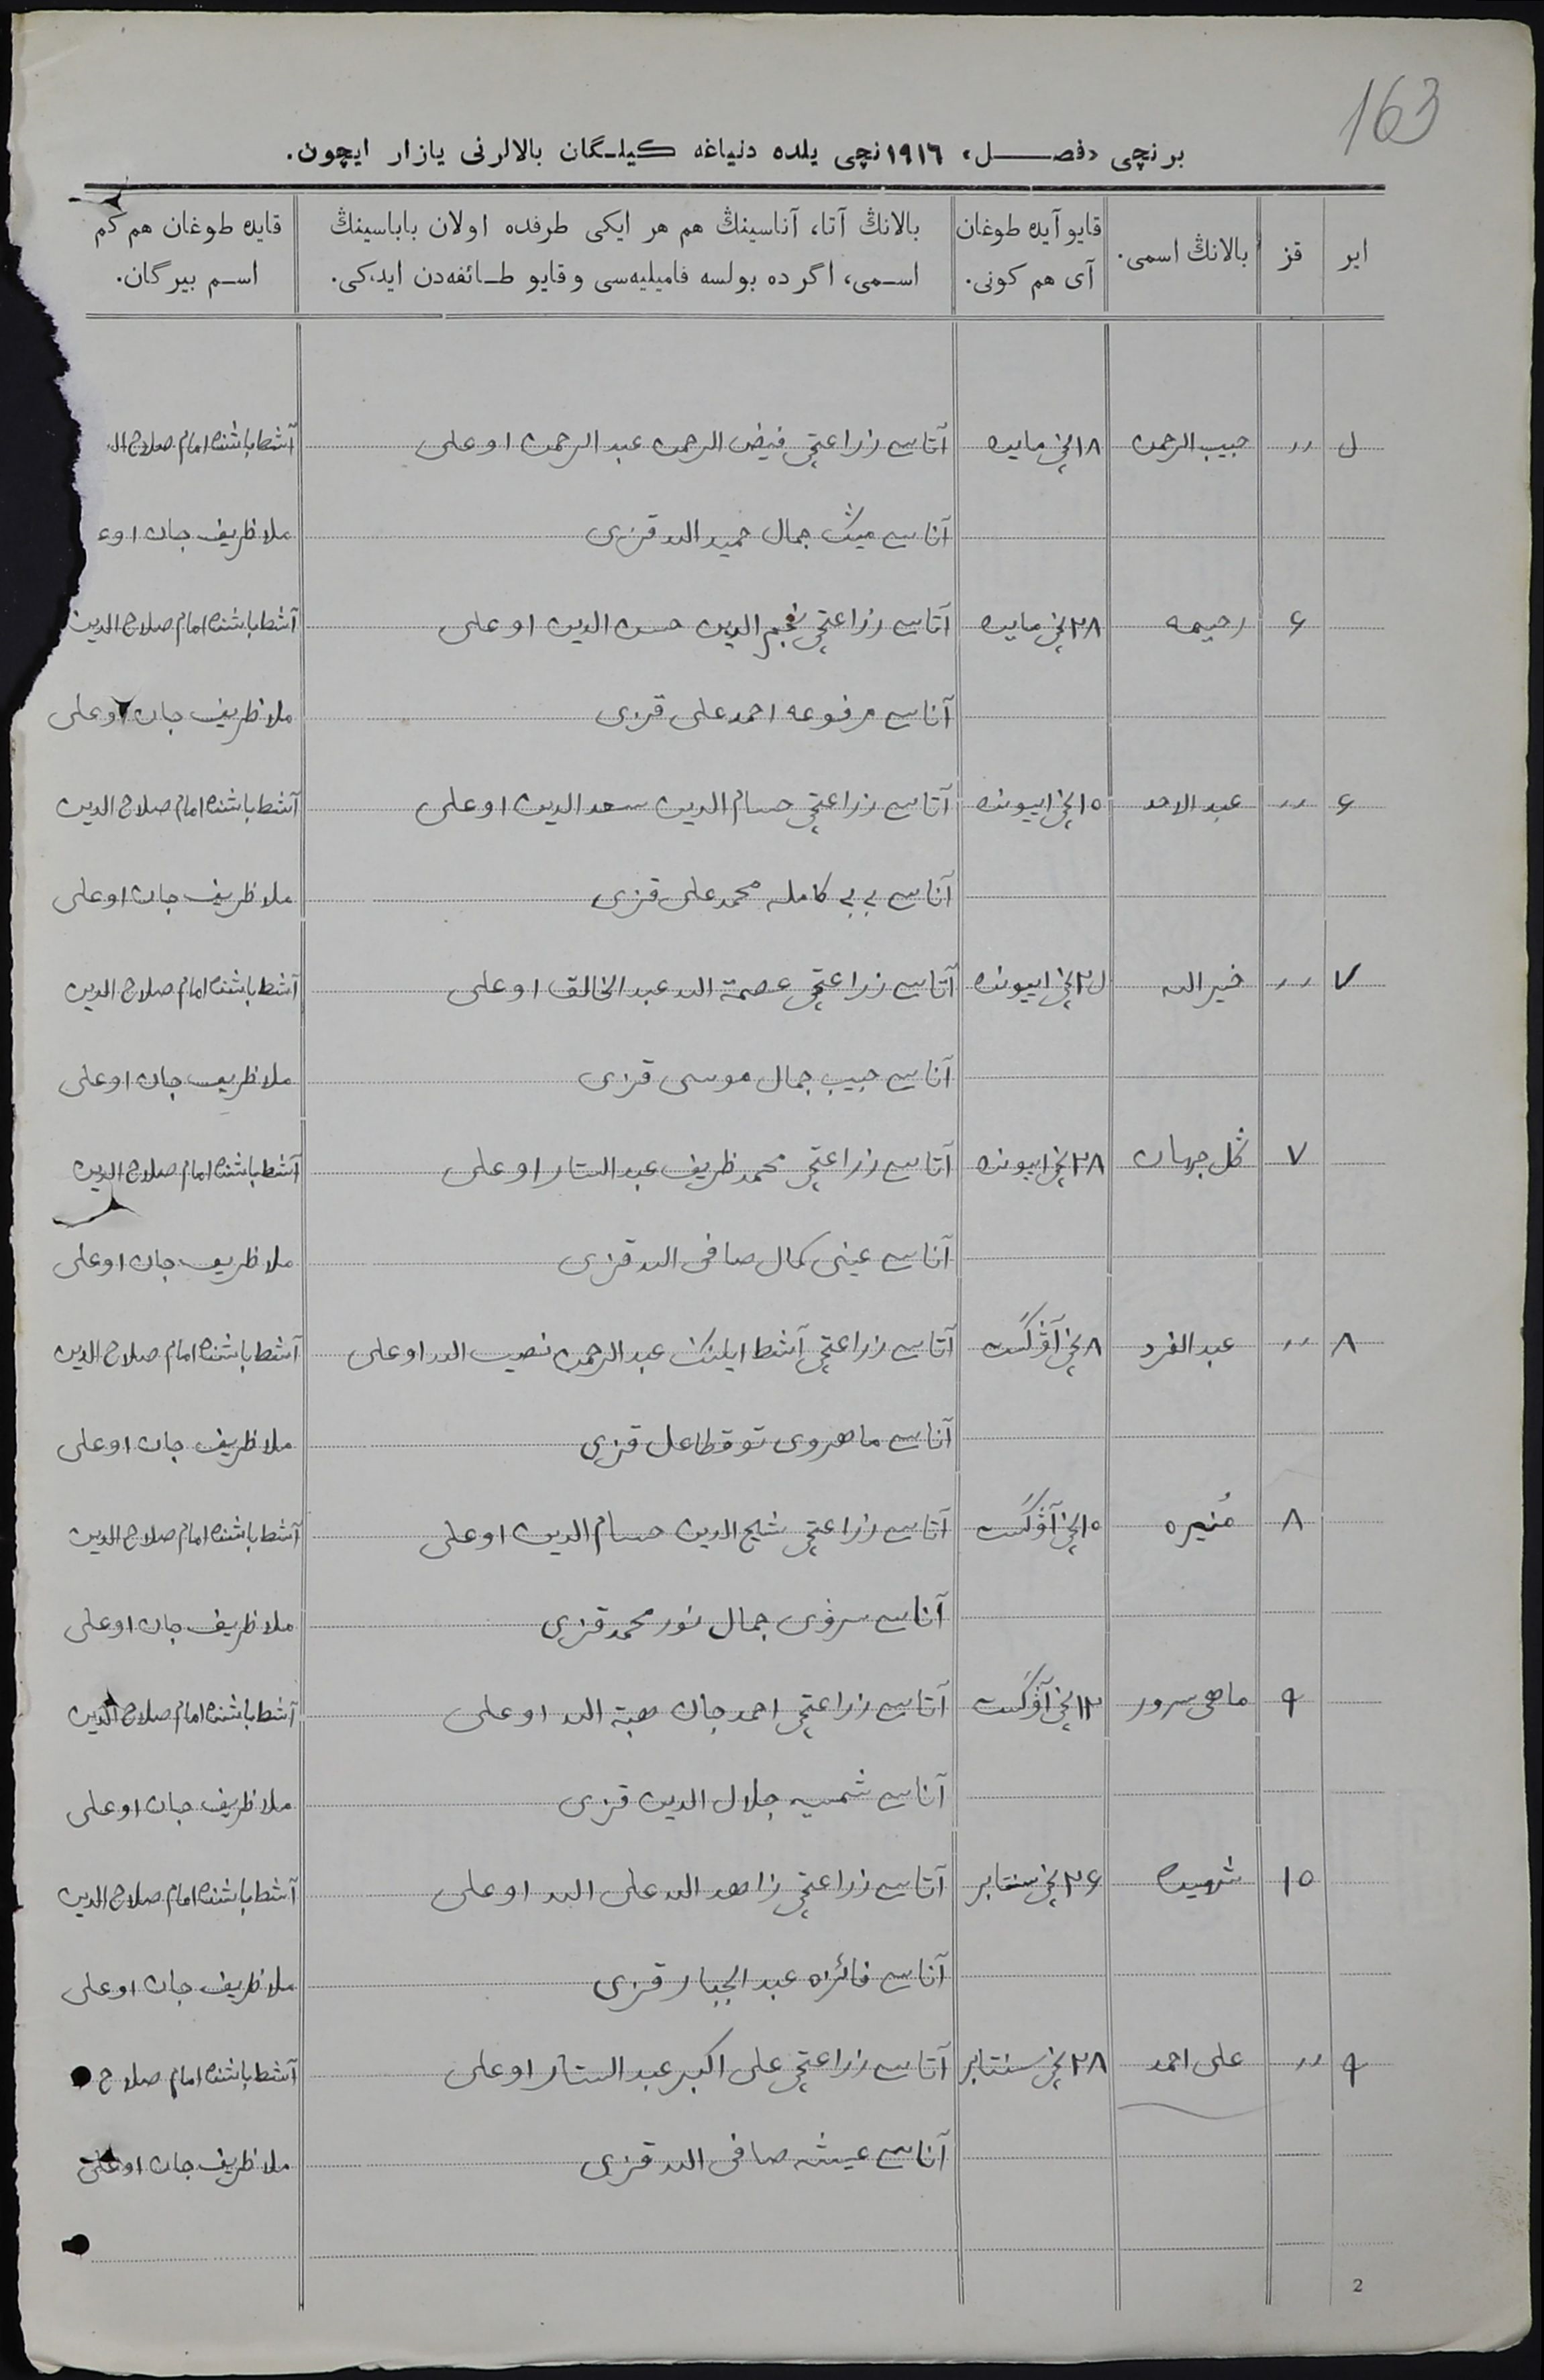 163
برنچی «فصل» ١٩١٦نچی یلده دنیاغه کیلـگان بالالرنی یازار ایچون.
ایر
قز
بالانڭ اسمی.
قایو آیده طوغان
آی هم کونی.
بالانڭ آتا، آناسینڭ هم هر ایکی طرفده اولان باباسینڭ
اسـمی، اگر ده بولسه فامیلیه‌سی و قایو طـائفه‌دن ایدکی.
قایده طوغان هم کم
اسـم بیرگان.
حبیب الرحمن ١٨نچی مایده آتاسی زراعتچی فیض الرحمن عبد الرحمن اوغلی آشطباشنده امام صلاح الـ
آناسی مینک جمال حمید الله قزی ملا ظریف جان اوغـ
۶ رحیمه ٢٨نچی مایده آتاسی زراعتچی نجم الدین حسن الدین اوغلی آشطباشنده امام صلاح الدین
آناسی مرفوعه احمد علی قزی ملا ظریف جان اوغلی
۶ ,, عبد الاحد ١٥نچی ایيونده آتاسی زراعتچی حسام الدین سعد الدین اوغلی آشطباشنده امام صلاح الدین
آناسی بی بی کامله محمد علی قزی ملا ظریف جان اوغلی
٧ ,, خیر الله نچی ایيونده آتاسی زراعتچی عصمة الله عبد الخالق اوغلی آشطباشنده امام صلاح الدین
آناسی حبیب جمال موسی قزی ملا ظریف جان اوغلی
٧ گل جهان ٢٨نچی ایيونده آتاسی زراعتچی محمد ظریف عبد الستار اوغلی آشطباشنده امام صلاح الدین
آناسی عینی کمال صافی الله قزی ملا ظریف جان اوغلی
٨ ,, عبد الفرد ٨نچی آوگست آتاسی زراعتچی آشط ایلینک عبد الرحمن نصیب الله اوغلی آشطباشنده امام صلاح الدین
آناسی ماهروی توقطاغل قزی ملا ظریف جان اوغلی
٨ مُنیره ١٥نچی آوگست آتاسی زراعتچی شیخ الدین حسام الدین اوغلی آشطباشنده امام صلاح الدین
آناسی سروی جمال نور محمد قزی ملا ظریف جان اوغلی
٩ ماهی سرور ١٢نچی آوگست آتاسی زراعتچی احمد جان هبة الله اوغلی آشطباشنده امام صلاح الدین
آناسی شمسیه جلال الدین قزی ملا ظریف جان اوغلی
١٥ شهیده ٢۶نچی سنتابر آتاسی زراعتچی زاهد الله علی الله اوغلی آشطباشنده امام صلاح الدین
آناسی فائزه عبد الجبار قزی ملا ظریف جان اوغلی
٩ ,, علی احمد ٢٨نچی سنتابر آتاسی زراعتچی علی اکبر عبد الستار اوغلی آشطباشنده امام صلاح
آناسی عیشه صافی الله قزی ملا ظریف جان اوغلی
2